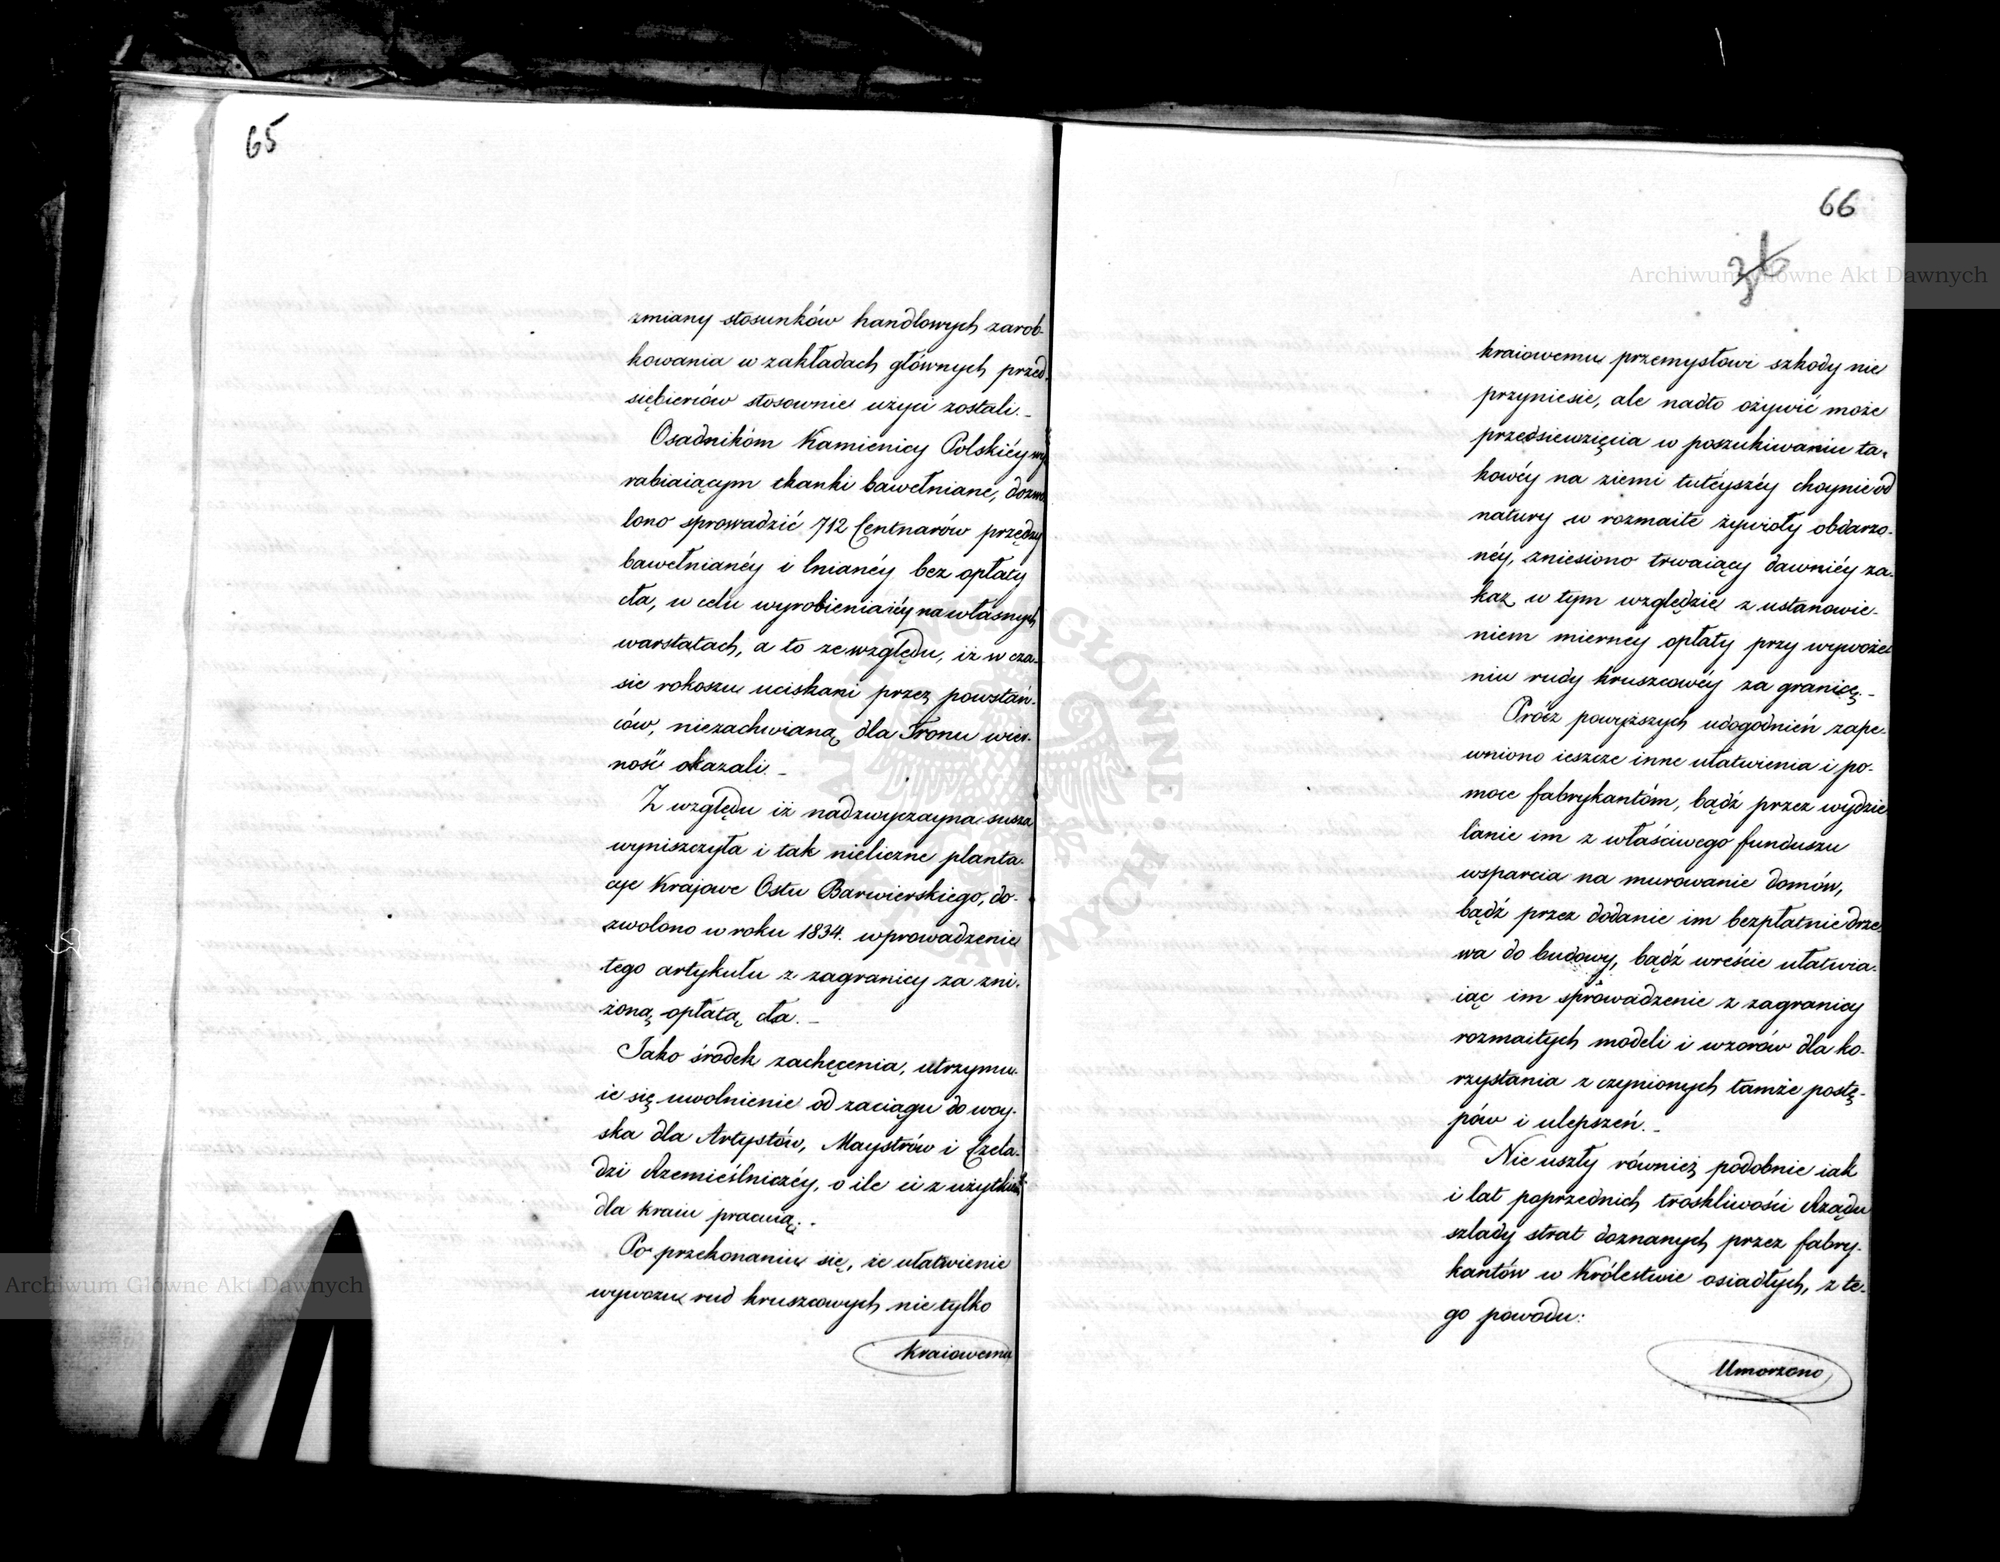 65
zmiany stosunków handlowych zarob-
kowania w zakładach głównych przed-
siębierców stosownie użyci zostali.
Osadnikóm Kamienicy Polskiéy wy
rabiaiącym tkanki bawełniane, dozwo
lono sprowadzić 712 Centnarów przędzy
bawełnianéy i lnianéy bez opłaty
cła, w celu wyrobienia iéy na własnych
warstatach, a to ze względu, iż w cza-
sie rokoszu uciskani przez powstań-
ców, niezachwianą dla Tronu wier-
ność okazali.
Z względu iż nadzwyczayna susza
wyniszczyła i tak nieliczne planta-
cye Krajowe Ostu Barwierskiego, do-
zwolono w roku 1834. wprowadzenie
tego artykułu z zagranicy za zni-
żoną opłatą cła.
Jako środek zachęcenia, utrzymu-
ie się uwolnienie od zaciągu do woy-
ska dla Artystów, Maystrów i Czela-
dzi Rzemieślniczéy, o ile ci z użytkiem
dla kraiu pracuią.
Po przekonaniu się, że ułatwienie
wywozu rud kruszcowych nie tylko
kraiowemu
66
kraiowemu przemysłowi szkody nie
przyniesie, ale nadto ożywić może
przedsiewzięcia w poszukiwaniu ta-
kowéy na ziemi tutéyszéy choynie od
natury w rozmaite żywioły obdarzo-
néy, zniesiono trwaiący dawniéy za-
kaz w tym względzie z ustanowie-
niem miernéy opłaty przy wywoże-
niu rudy kruszcowéy za granicę.
Prócz powyższych udogodnień zape-
wniono ieszcze inne ułatwienia i po-
moce fabrykantóm, bądź przez wydzie
lanie im z właściwego funduszu
wsparcia na murowanie domów,
bądź przez dodanie im bezpłatnie drze-
wa do budowy, bądź wreście ułatwia-
iąc im sprowadzenie z zagranicy
rozmaitych modeli i wzorów dla ko-
rzystania z czynionych tamże postę-
pów i ulepszeń.
Nie uszły również podobnie iak
i lat poprzednich troskliwości Rządu
szlady strat doznanych przez fabry-
kantów w Królestwie osiadłych, z te-
go powodu:
Umorzono
Archiwum Główne Akt Dawnych
Archiwum Główne Akt Dawnych
ARCHIWUM GŁÓWNE AKT DAWNYCH